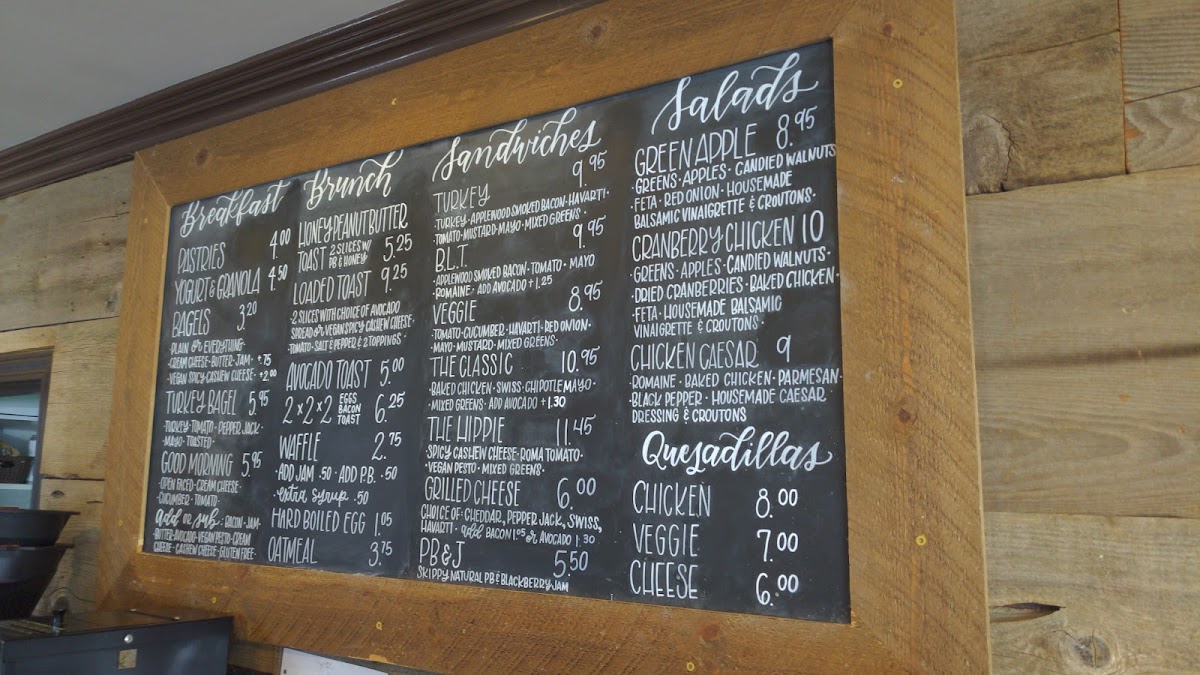 Breakfast
PASTRIES 4.00
YOGURT & GRANOLA 4.50
BAGELS 3.20
PLAIN or EVERYTHING
CREAM CHEESE · BUTTER · JAM · +.75
· VEGAN SPICY CASHEW CHEESE · +2.00
TURKEY BAGEL 5.95
· TURKEY · TOMATO · PEPPER JACK ·
· MAYO · TOASTED ·
GOOD MORNING 5.95
· OPEN FACED · CREAM CHEESE ·
· CUCUMBER · TOMATO ·
add or sub: BACON · JAM ·
BUTTER · AVOCADO · VEGAN PESTO · CREAM
CHEESE · CASHEW CHEESE · GLUTEN FREE ·
Brunch
HONEY PEANUT BUTTER
TOAST 2 SLICES W/ PB & HONEY 5.25
LOADED TOAST 9.25
· 2 SLICES WITH CHOICE OF AVOCADO
SPREAD or VEGAN SPICY CASHEW CHEESE ·
TOMATO · SALT & PEPPER & 2 TOPPINGS ·
AVOCADO TOAST 5.00
2 x 2 x 2 EGGS BACON TOAST 6.25
WAFFLE 2.75
· ADD JAM .50 · ADD P.B. .50
extra syrup .50
HARD BOILED EGG 1.05
OATMEAL 3.75
Sandwiches
TURKEY 9.95
· TURKEY · APPLEWOOD SMOKED BACON · HAVARTI ·
TOMATO · MUSTARD · MAYO · MIXED GREENS ·
B.L.T. 9.95
· APPLEWOOD SMOKED BACON · TOMATO · MAYO
· ROMAINE · ADD AVOCADO +1.25
VEGGIE 8.95
· TOMATO · CUCUMBER · HAVARTI · RED ONION ·
MAYO · MUSTARD · MIXED GREENS ·
THE CLASSIC 10.95
· BAKED CHICKEN · SWISS · CHIPOTLE MAYO ·
· MIXED GREENS · ADD AVOCADO +1.30
THE HIPPIE 11.45
SPICY CASHEW CHEESE · ROMA TOMATO ·
VEGAN PESTO · MIXED GREENS ·
GRILLED CHEESE 6.00
CHOICE OF: CHEDDAR, PEPPER JACK, SWISS,
HAVARTI · add BACON 1.05 or AVOCADO 1.30
PB & J 5.50
SKIPPY NATURAL PB & BLACKBERRY JAM
Salads
GREEN APPLE 8.95
· GREENS · APPLES · CANDIED WALNUTS
FETA · RED ONION · HOUSEMADE
BALSAMIC VINAIGRETTE & CROUTONS ·
CRANBERRY CHICKEN 10
· GREENS · APPLES · CANDIED WALNUTS ·
· DRIED CRANBERRIES · BAKED CHICKEN ·
FETA · HOUSEMADE BALSAMIC
VINAIGRETTE & CROUTONS ·
CHICKEN CAESAR 9
ROMAINE · BAKED CHICKEN · PARMESAN ·
BLACK PEPPER · HOUSEMADE CAESAR
DRESSING & CROUTONS
Quesadillas
CHICKEN 8.00
VEGGIE 7.00
CHEESE 6.00